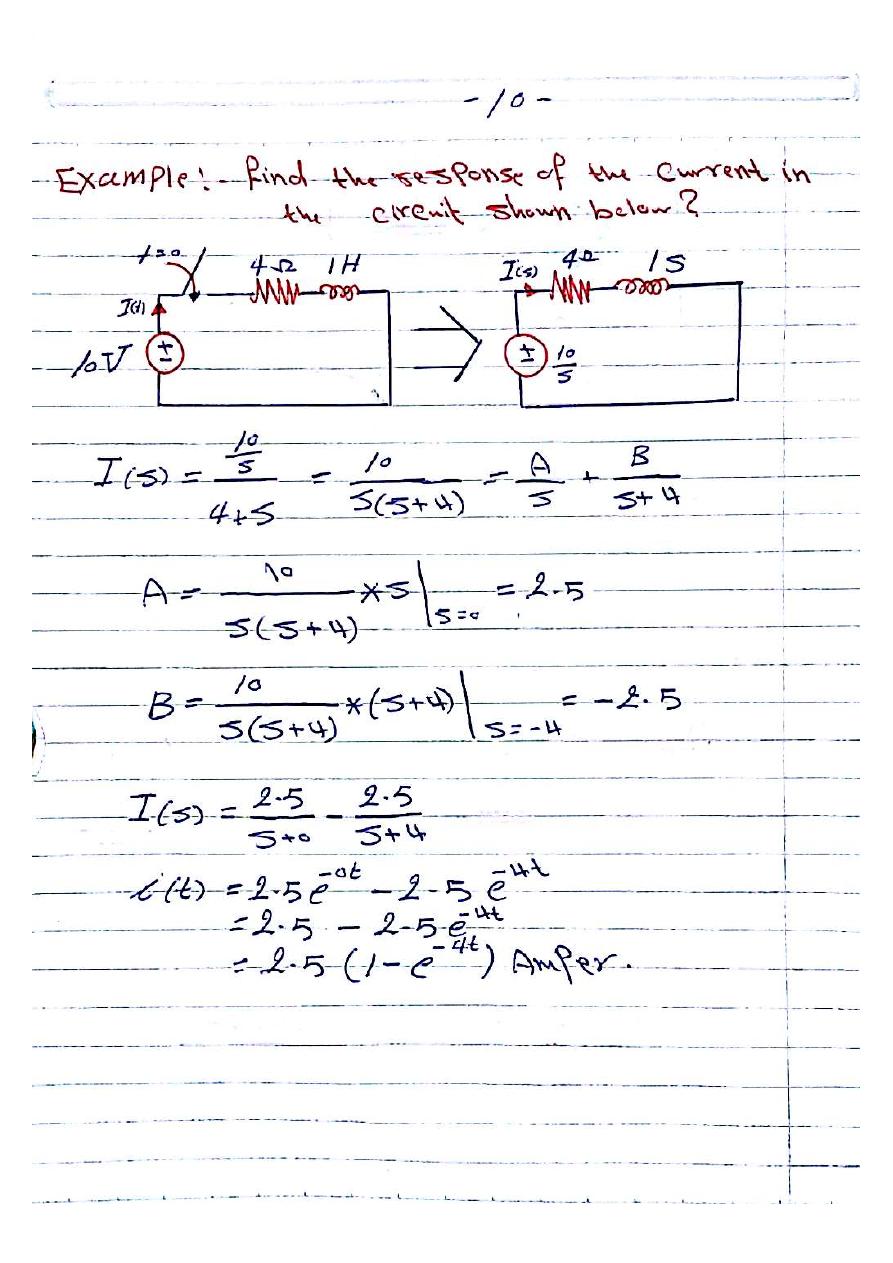 - 10 -
Example:- find the response of the current in
the circuit shown below?
t=0 4Ω 1H
I(t)
10V
I(s) 4Ω 1S
10/S
I(s) = (10/S)/(4+S) = 10/(S(S+4)) = A/S + B/(S+4)
A = 10/(S(S+4)) * S | S=0 = 2.5
B = 10/(S(S+4)) * (S+4) | S=-4 = -2.5
I(s) = 2.5/(S+0) - 2.5/(S+4)
i(t) = 2.5 e^-0t - 2.5 e^-4t
= 2.5 - 2.5 e^-4t
= 2.5 (1 - e^-4t) Amper.